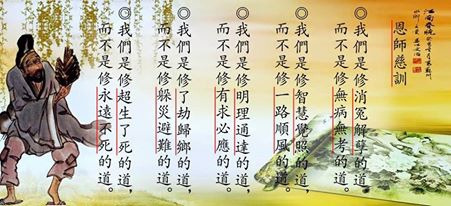 江南春曉
恩師慈訓
◎我們是修消冤解孽的道,
而不是修無病無考的道。
◎我們是修智慧覺照的道,
而不是修一路順風的道。
◎我們是修明理通達的道,
而不是修有求必應的道。
◎我們是修了劫歸鄉的道,
而不是修躲災避難的道。
◎我們是修超生了死的道,
而不是修永遠不死的道。